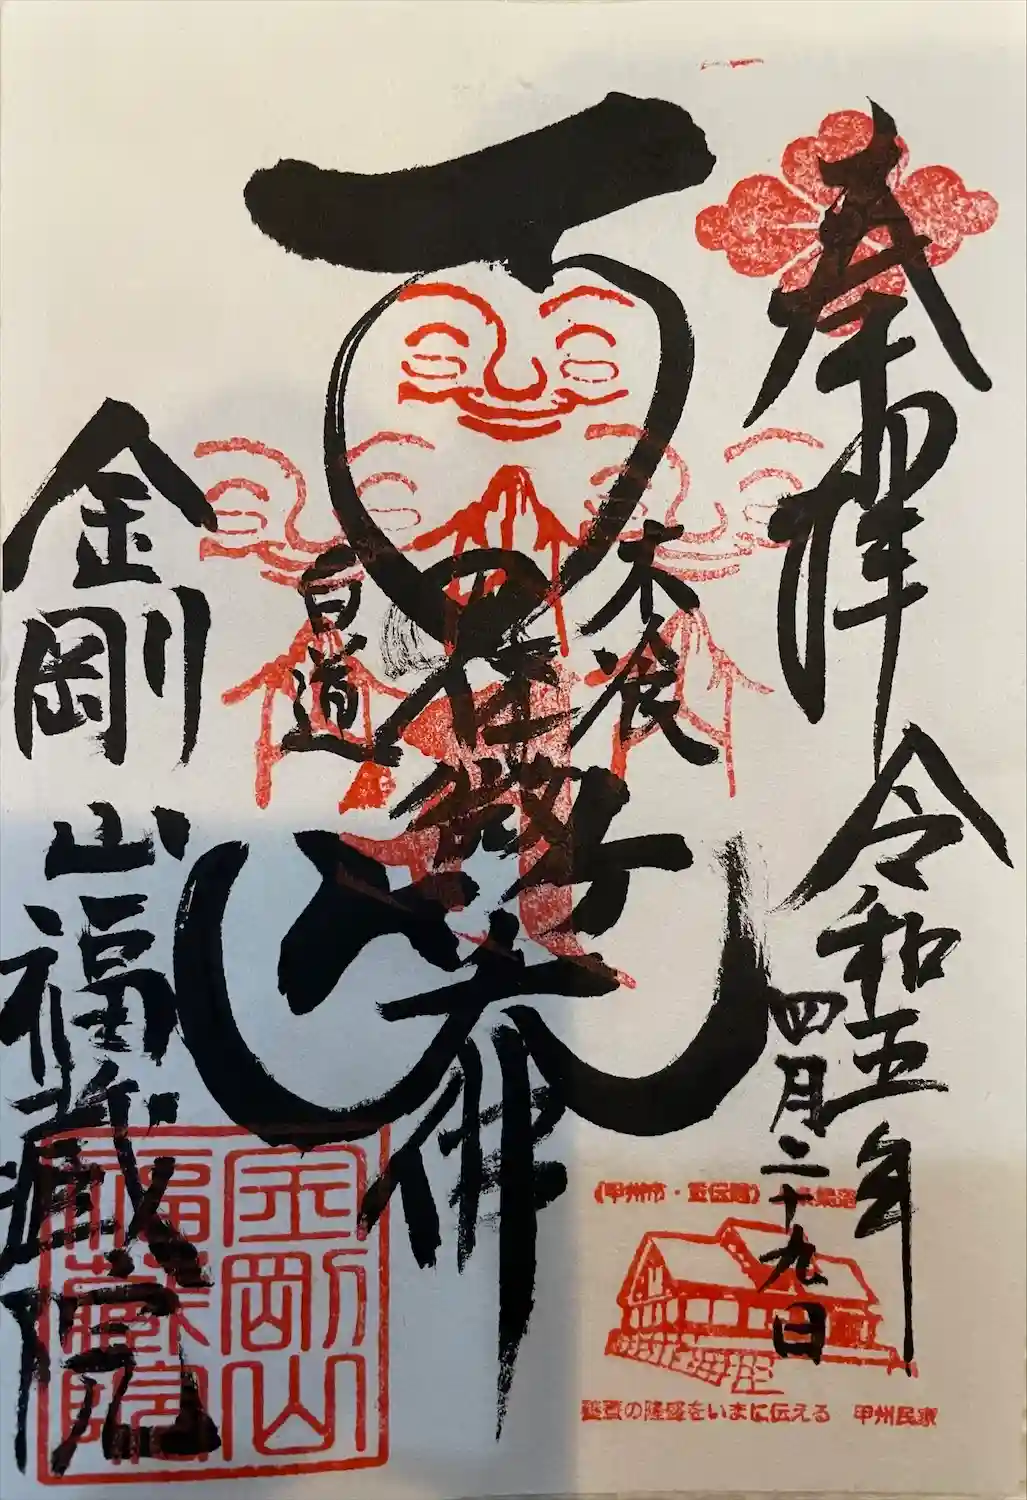 奉拝
令和五年
四月二十九日
木食
白道
金剛山福蔵院
金剛山
福蔵院
(甲州市・重伝建) 条集落
養蚕の隆盛をいまに伝える 甲州民家